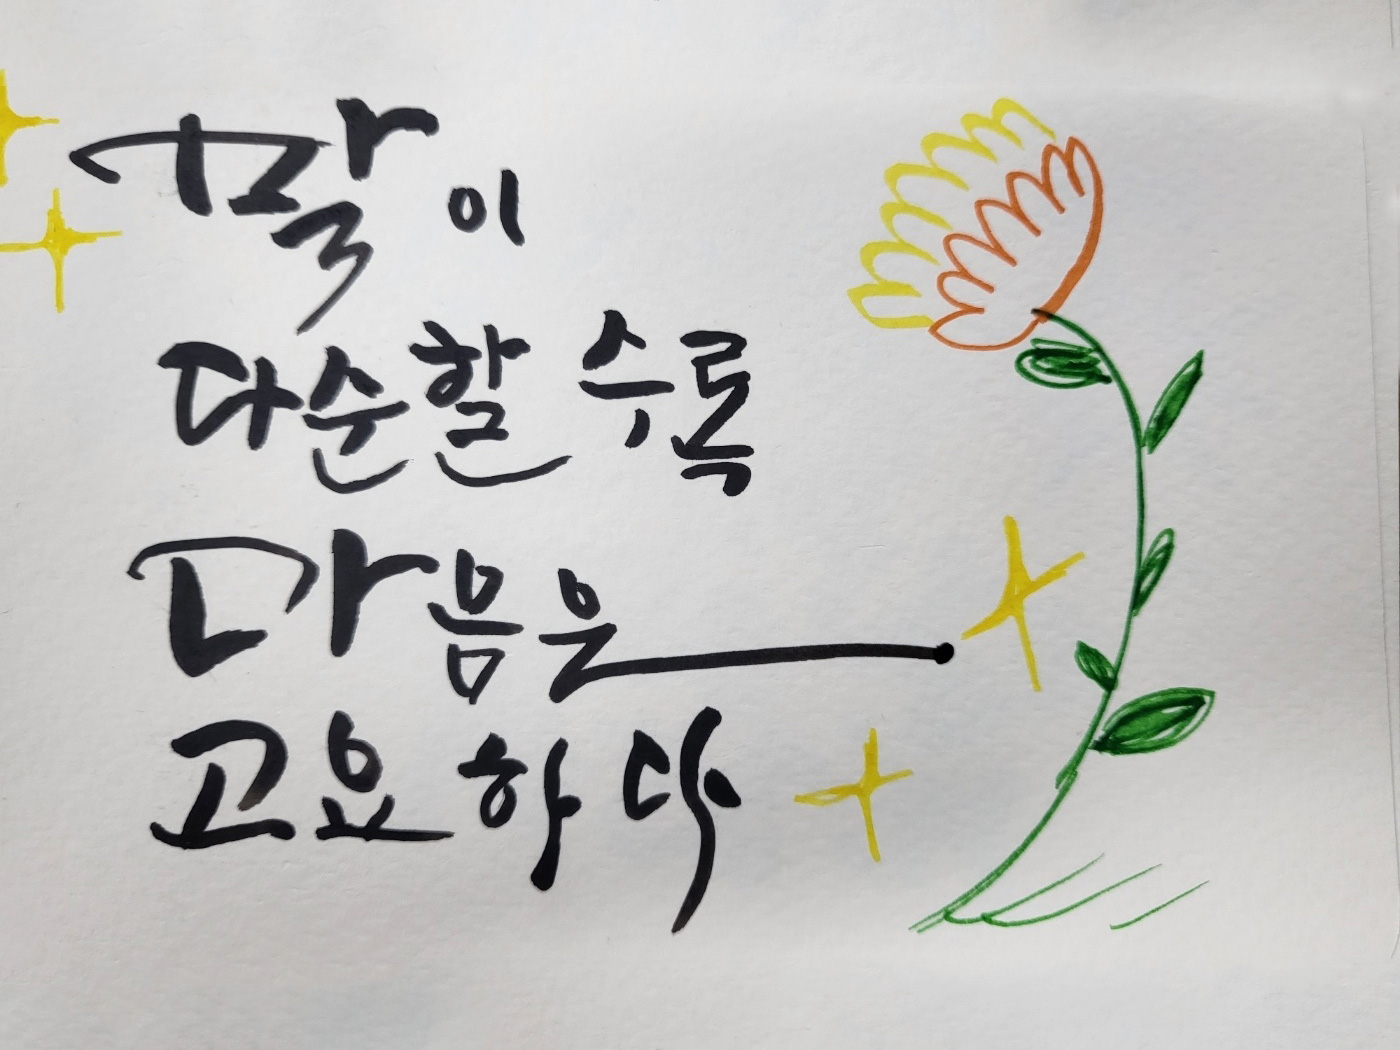 말이
단순할 수록
마음은
고요하다